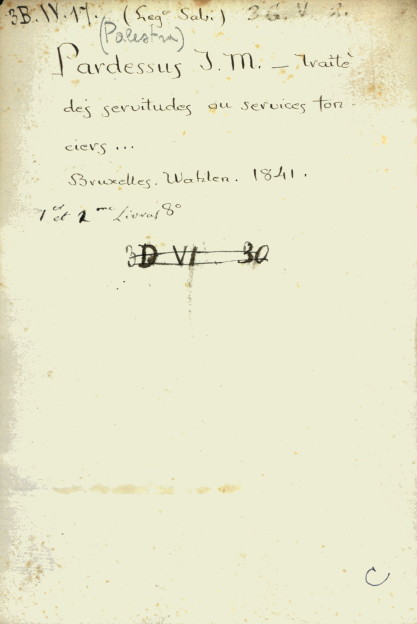 3B. IV. 17. (Leg.º Sab.) 3 G. V. 2.
(Palestra)
Pardessus J. M. — Traitè
des servitudes ou services fon-
ciers ...
Bruxelles. Wahlen. 1841.
1er et 2me Livres 8º
3D VI 30
C